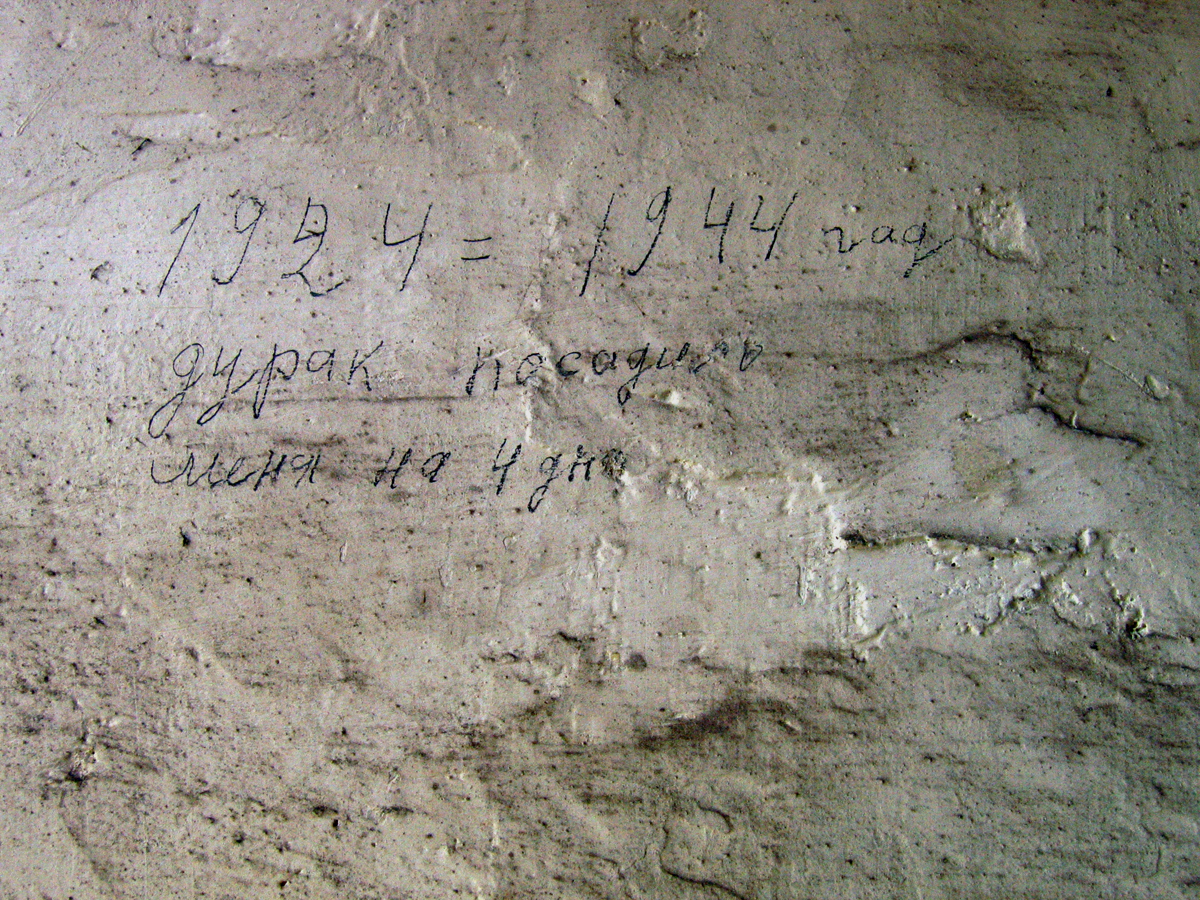 1924 = 1944 гад
дурак посадило
меня на 4 дна